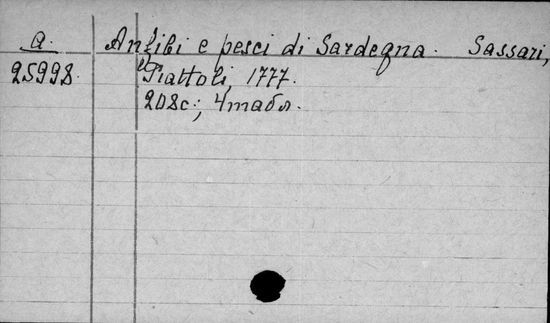 a. Anfibi e pesci di Sardegna. Sassari,
25998. Piattoli, 1777.
208с.; 4табл.